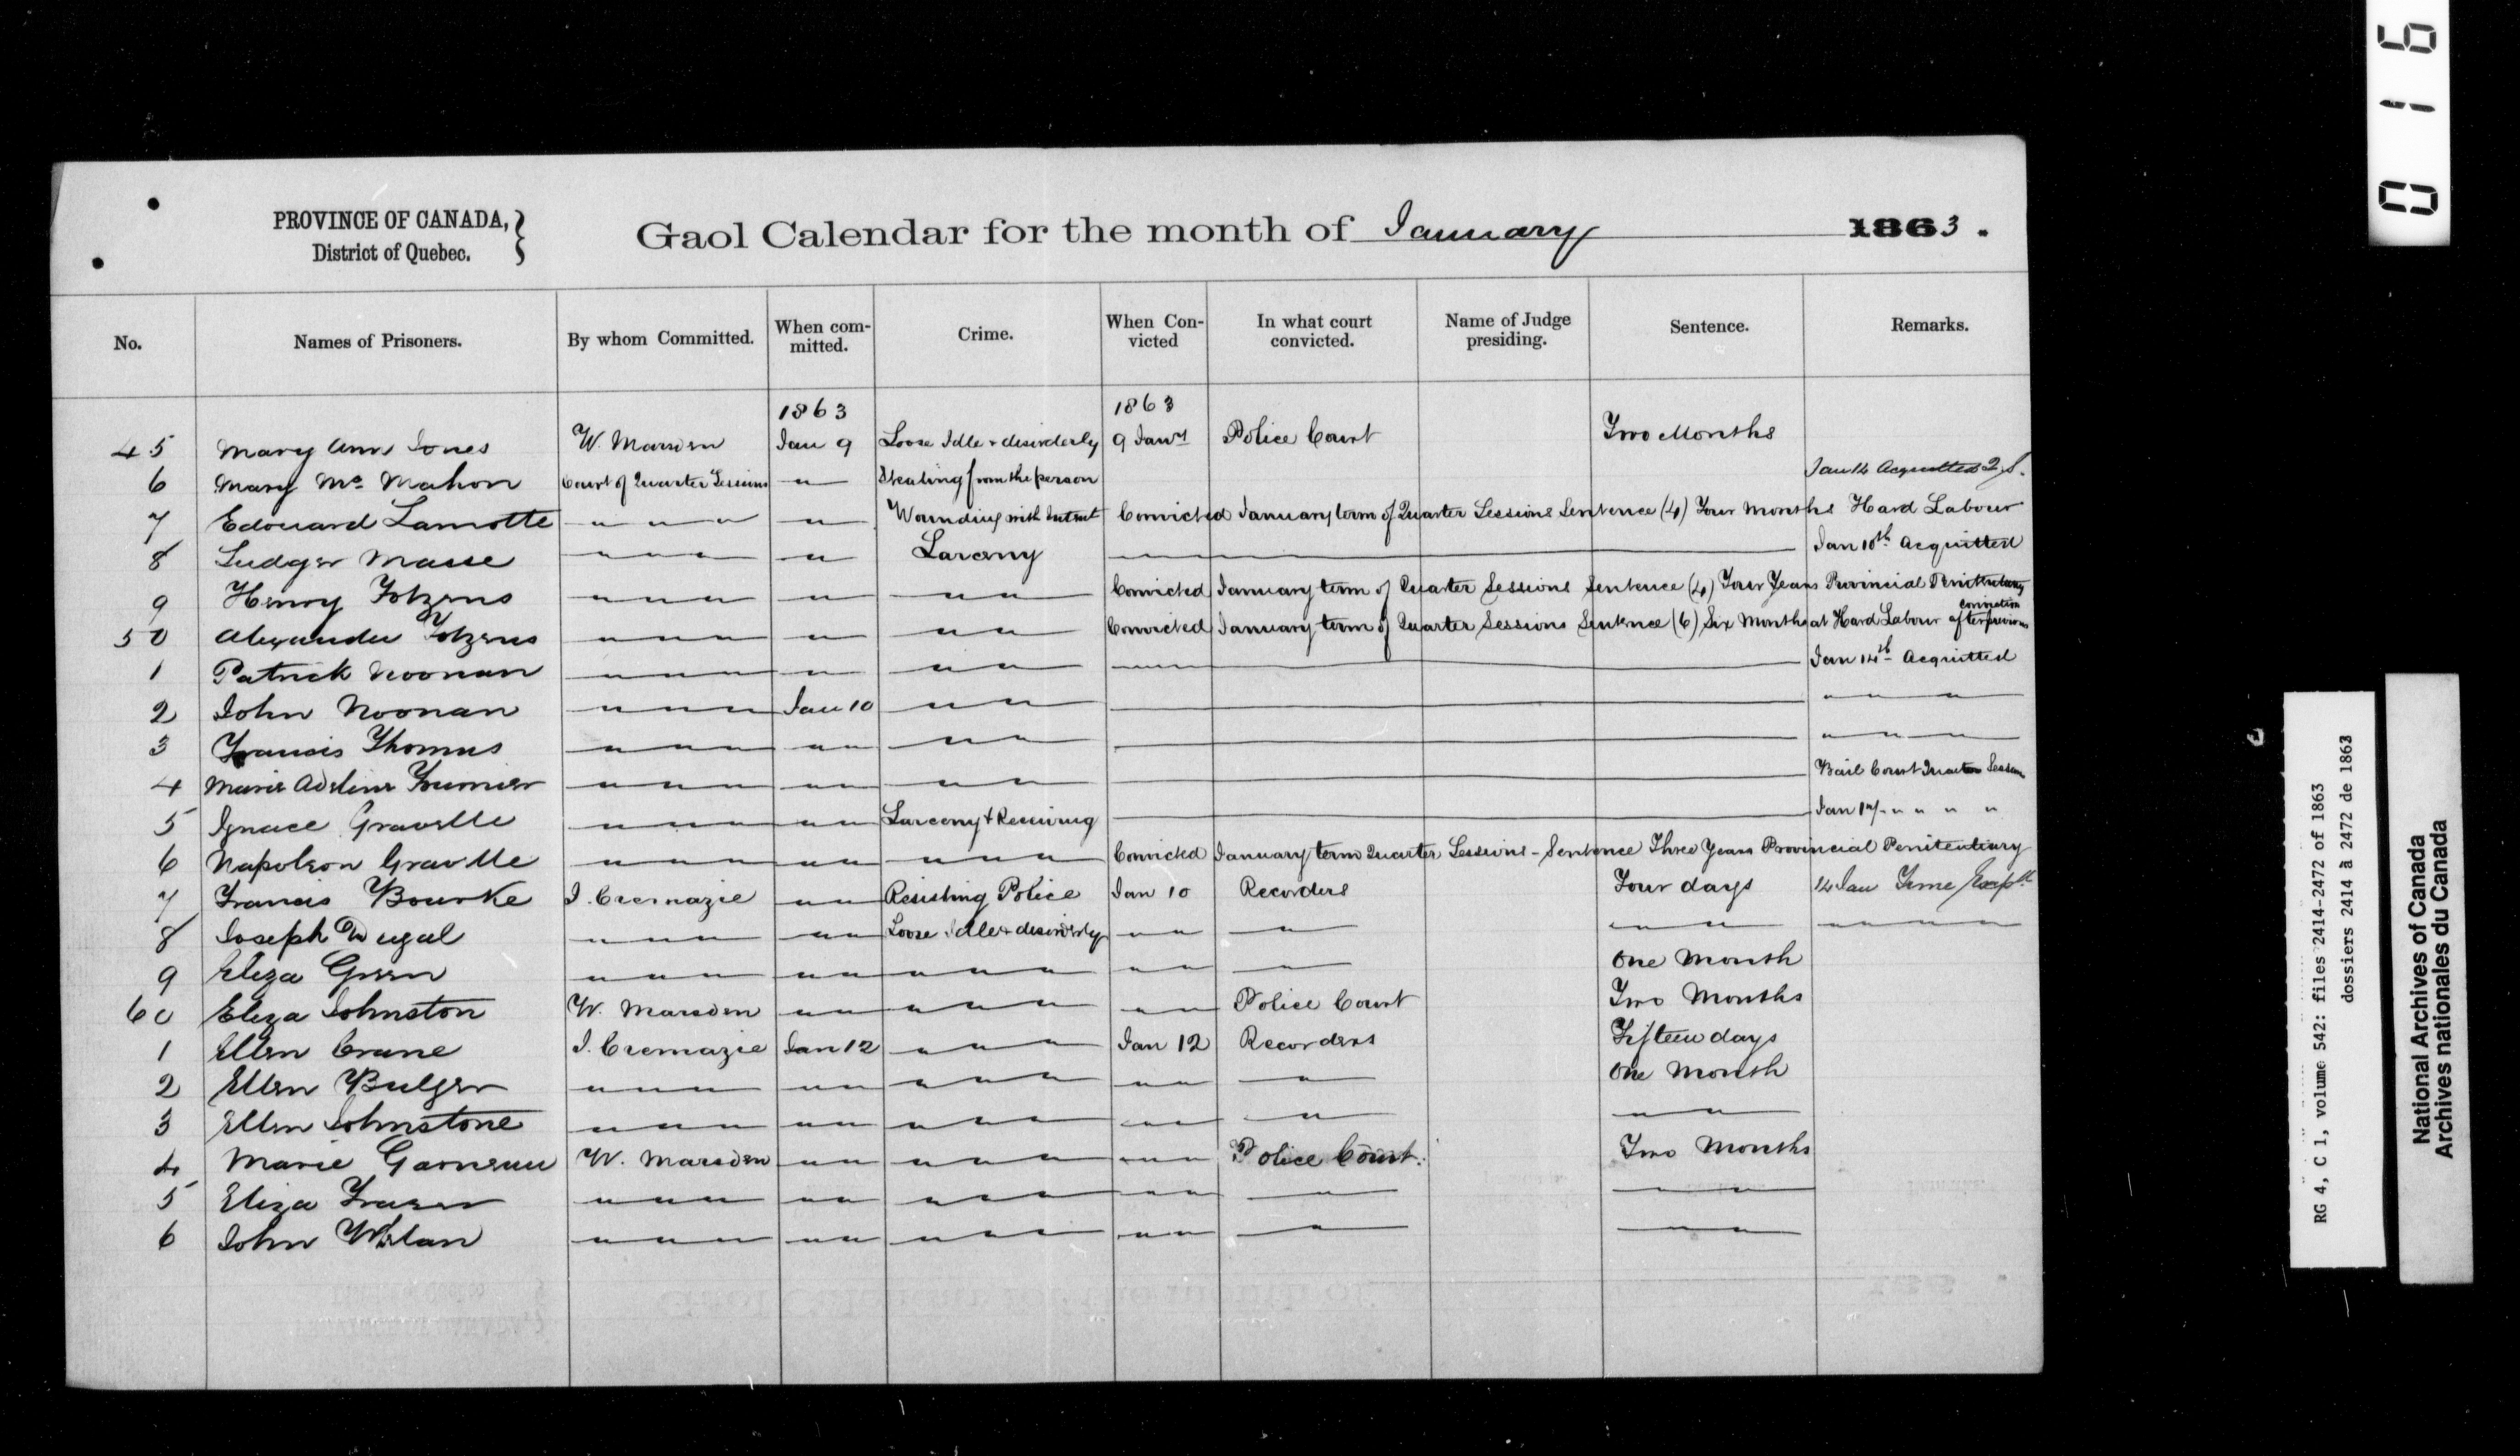 PROVINCE OF CANADA,
District of Quebec.
Gaol Calendar for the month of January 1863.
No. Names of Prisoners. By whom Committed. When committed. Crime. When Convicted In what court convicted. Name of Judge presiding. Sentence. Remarks.
1863 1863
45 Mary Ann Jones W. Marsden Jan 9 Loose Idle & disorderly 9 Jany Police Court Two Months
6 Mary Mc Mahon Court of Quarter Sessions " Stealing from the person Jan 14 Acquitted Q.S.
7 Edouard Lamotte " " " " Wounding with Intent Convicted January term of Quarter Sessions Sentence (4) Four Months Hard Labour
8 Ludger Masse " " " " Larceny " " Jan 10th Acquitted
9 Henry Fotzens " " " " " " Convicted January term of Quarter Sessions Sentence (4) Four Years Provincial Penitentiary
50 Alexander Fotzens " " " " " " Convicted January term of Quarter Sessions Sentence (6) Six Months at Hard Labour after previous conviction
1 Patrick Noonan " " " " " " " " Jan 14th Acquitted
2 John Noonan " " " Jan 10 " " " " "
3 Francis Thomas " " " " " " " " " "
4 Marie Adeline Fournier " " " " " " " Bail Court Quarter Session
5 Ignace Gravelle " " " " " Larceny & Receiving Jan 17 " " " "
6 Napoleon Gravelle " " " " " " " " Convicted January term Quarter Sessions - Sentence Three Years Provincial Penitentiary
7 Francis Bourke J. Cremazie " " Resisting Police Jan 10 Recorders Four days 14 Jan Time Expd
8 Joseph Dugal " " " " " Loose Idle & disorderly " " " " " " " " "
9 Eliza Green " " " " " " " " " " " One Month
60 Eliza Johnston W. Marsden " " " " " " " Police Court Two Months
1 Ellen Crane J. Cremazie Jan 12 " " " Jan 12 Recorders Fifteen days
2 Ellen Bulger " " " " " " " " " " " One Month
3 Ellen Johnstone " " " " " " " " " " " " "
4 Marie Garneau W. Marsden " " " " " " " " Police Court. Two Months
5 Eliza Fraser " " " " " " " " " " " " "
6 John Whelan " " " " " " " " " " " " "
0116
RG 4, C 1, volume 542: files 2414-2472 of 1863
dossiers 2414 à 2472 de 1863
National Archives of Canada
Archives nationales du Canada